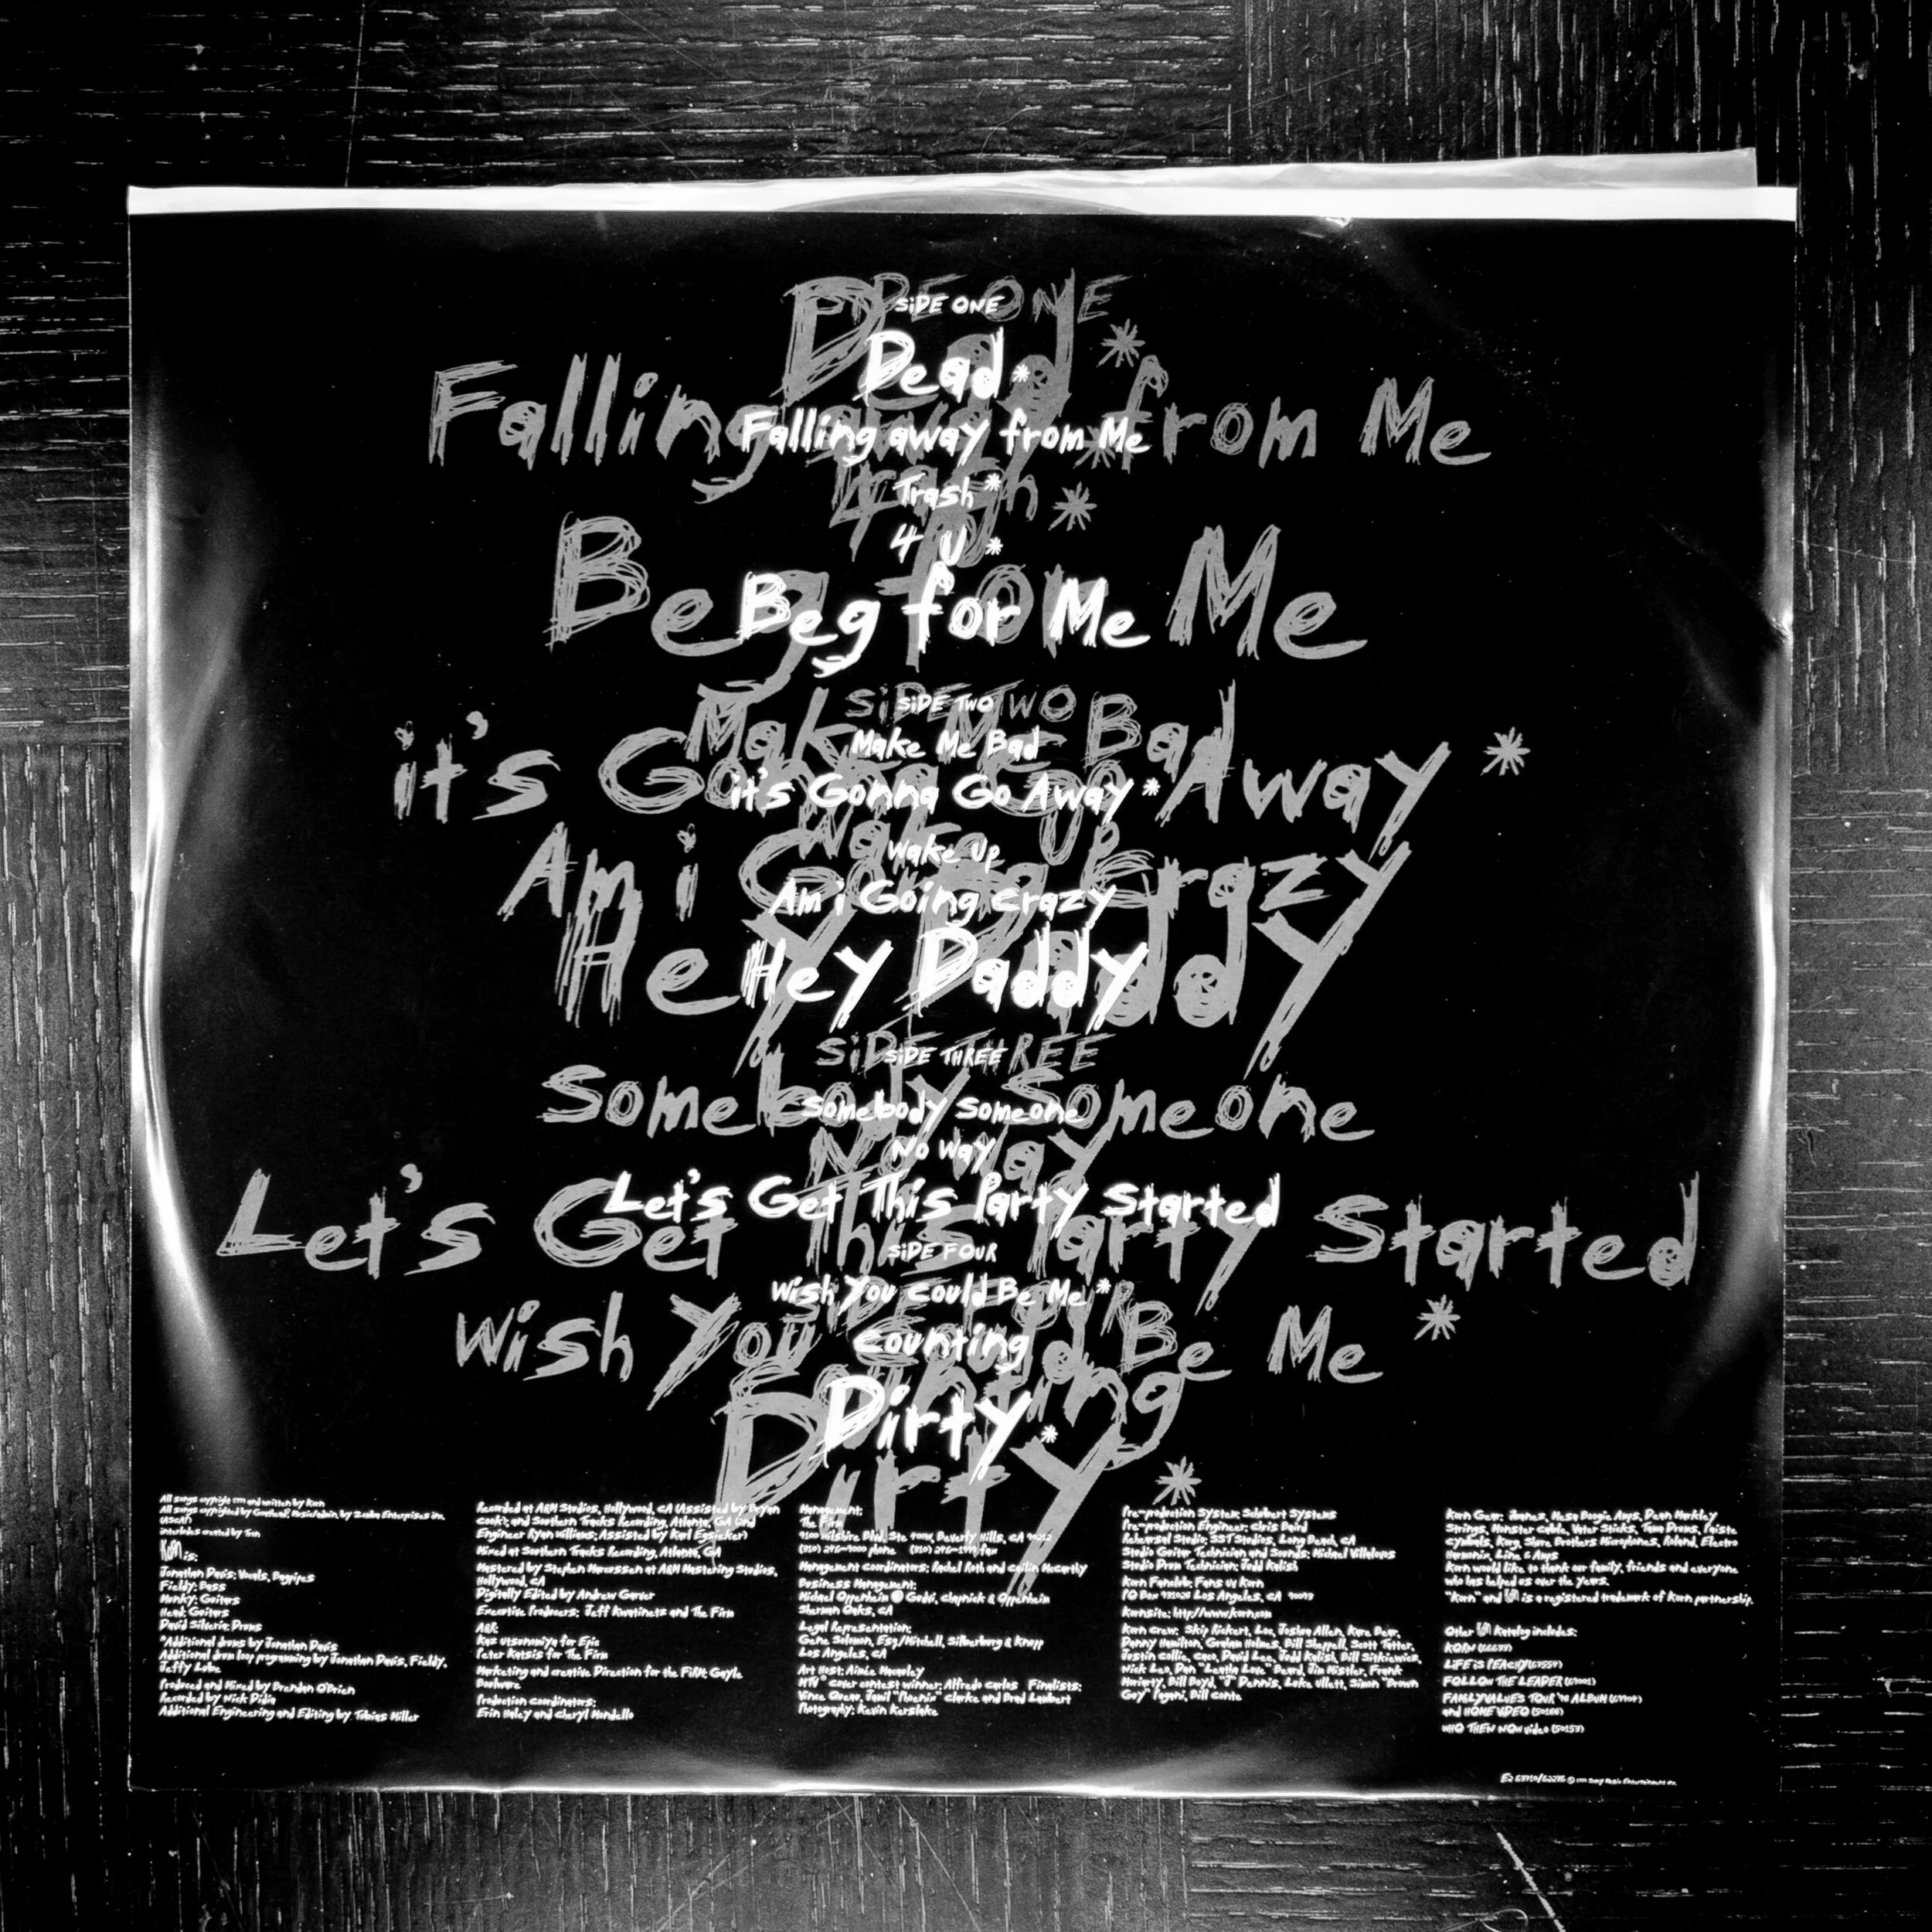 SiDE ONE
Dead *
Falling away from Me
Trash *
4 U *
Beg for Me
SiDE TWO
Make Me Bad
it's Gonna Go Away *
Wake Up
Am i Going Crazy
Hey Daddy
SiDE THREE
Somebody Someone
No Way
Let's Get This Party Started
SiDE FOUR
Wish You Could Be Me *
Counting
Dirty *
All songs copyright 1999 and written by Korn
All songs copyrighted by Music/admin. by Zomba Enterprises inc.
(ASCAP)
interludes created by Tom
KoRn is:
Jonathan Davis: Vocals, Bagpipes
Fieldy: Bass
Munky: Guitars
Head: Guitars
David Silveria: Drums
*Additional drums by Jonathan Davis
Additional drum loop programming by Jonathan Davis, Fieldy,
Jeffy Lube
Produced and Mixed by Brendan O'Brien
Recorded by Nick Didia
Additional Engineering and Editing by Tobias Miller
Recorded at A&M Studios, Hollywood, CA (Assisted by Bryan
Cook); and Southern Tracks Recording, Atlanta, GA (2nd
Engineer Ryan Williams; Assisted by Karl Egsieker)
Mixed at Southern Tracks Recording, Atlanta, GA
Mastered by Stephen Marcussen at A&M Mastering Studios,
Hollywood, CA
Digitally Edited by Andrew Garver
Executive Producers: Jeff Kwatinetz and The Firm
A&R:
Kaz Utsunomiya for Epic
Peter Katsis for The Firm
Marketing and Creative Direction for the FiRM: Gayle
Boulware
Production Coordinators:
Erin Haley and Cheryl Mondello
Management:
The Firm
9100 Wilshire Blvd, Ste 400W, Beverly Hills, CA 90212
(310) 246-9000 phone (310) fax
Management Coordinators: Rachel Roth and Caitlin McCarthy
Business Management:
Michael Oppenheim @ Gudvi, Chapnick & Oppenheim
Sherman Oaks, CA
Legal Representation:
Gene Salomon, Esq/Mitchell, Silberberg & Knupp
Los Angeles, CA
Art Host: Aimée Macauley
MTV® Cover contest winner: Alfredo Carlos Finalists:
Vince Jamil "Phoenix" Clarke and Brad Lambert
Photography: Kevin Kerslake
Pre-production System: Schubert Systems
Pre-production Engineer: Chris Baird
Rehearsal Studio: SST Studios, Long Beach, CA
Studio Guitar Technician and Sounds: Michael Villalovos
Studio Drum Technician: Jodd Kalish
Korn Fanclub: Fans w Korn
PO Box Los Angeles, CA 90093
Kornsite: http://www.korn.com
Korn Crew: Skip Rickert, Loc, Joshua Allen, Kare Bear,
Danny Hamilton, Graham Holmes, Bill Sheppell, Scott Tatter,
Justin Collie, Coco, David Lee, Jodd Kalish, Bill Sitkiewies,
Nick Leo, Dan "Leathy Love" Beard, Jim Mistler, Frank
Moriarty, Bill Boyd, "T" Dennis, Luke Ullett, Simon "Brown
Guy" Pagani, Bill Conte
Korn Gear: Ibanez, Mesa Boogie Amps, Dean Markley
Strings, Monster Cable, Vater Sticks, Tama Drums, Paiste
Cymbals, Korg, Shure Brothers Microphones, Roland, Electro
Harmonix, Line 6 Amps
Korn would like to thank our family, friends and everyone
who has helped us over the years.
"Korn" and KoRn is a registered trademark of Korn partnership.
Other KoRn Katalog includes:
KORN (66633)
LiFE iS PEACHY (67554)
FOLLOW THE LEADER (69001)
FAMiLYVALUES TOUR '98 ALBUM (69904)
and HOMEVIDEO (50188)
WHO THEN NOW video (50153)